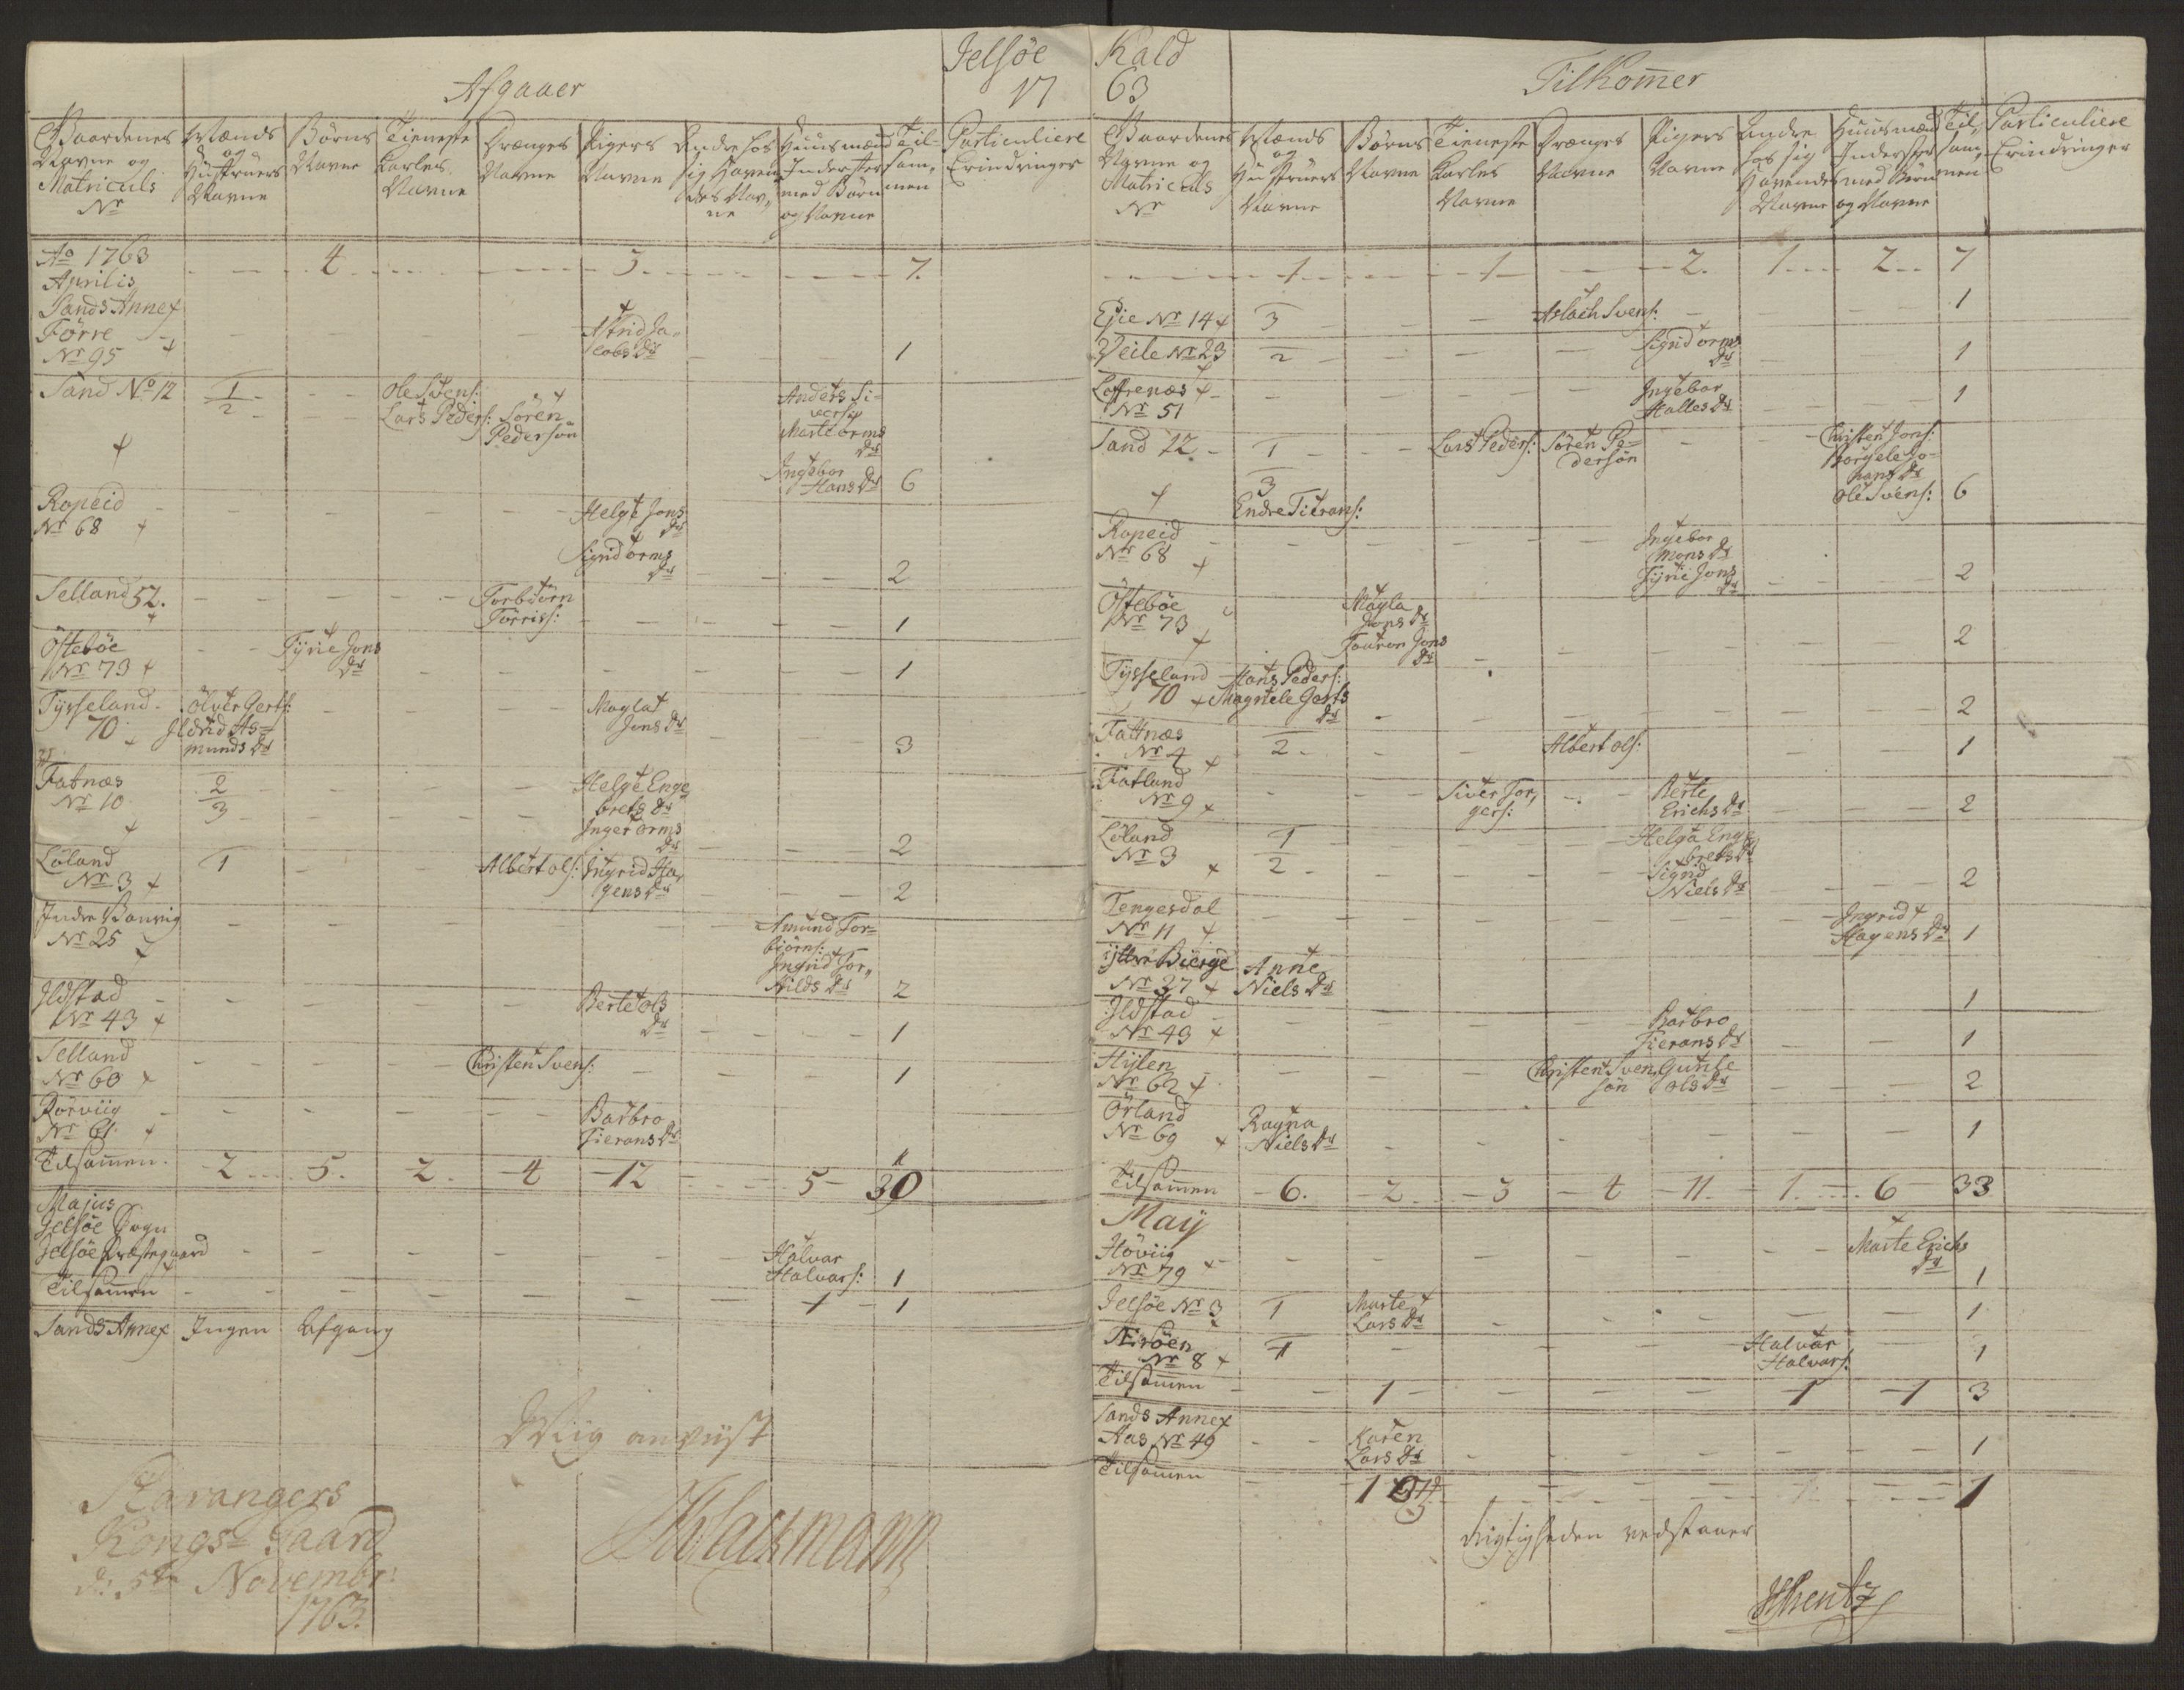 Jelsøe Kald
17 63
Afgaaer
Gaardenes Navne og Matriculs No | Mænds og Hustruers Navne | Børns Navne | Tieneste Karles Navne | Drænges Navne | Pigers Navne | Andre hos sig Havendes Navne | Huusmænd Inderster med Børn og Navne | Tilsammen | Particuliere Erindringer
Ao 1763 - - 4 - - - 3 - - - 7.
Aprilis
Sands Annex
Førre No 95 | Astrid Jacobs Dr | 1
Sand No 12 | 1/2 | Ole Svens: Lars Peders: | Søren Pedersøn | Anders Siversøn Marte Orms Dr Ingebor Hans Dr | 6
Ropeid No 68 | Helge Jons Dr Sigrid Orms Dr | 2
Selland 52. | Torbiørn Tørris: | 1
Østebøe No 73 | Tyrie Jons Dr | 1
Tysseland 70 | Ølver Gerts: Ildrid Asmunds Dr | Magla Jons Dr | 3
Fatnæs No 10 | 2/3 | Helge Engebrets Dr Inger Orms Dr | 2
Løland No 3 | 1 | Albert Ols: | Ingrid Hagens Dr | 2
Indre Vanvig No 25 | Amund Torbiørns: Ingrid Torkilds Dr | 2
Ildstad No 43 | Berte Ols Dr | 1
Selland No 60 | Christen Svens: | 1
Rørviig No 61 | Barbro Fierans Dr | 1
Tilsammen. 2 - 5. - 2. - 4 - 12 - - 5 - 30
Majus
Jelsøe Sogn
Jelsøe Præstegaard | Halvar Halvars: | 1
Tilsammen - - - - - - 1 - 1
Sands Annex Ingen Afgang
Stavangers
Kongs-Gaard
d: 5te Novembr:
1763.
Tilkommer
Gaardenes Navne og Matriculs No | Mænds og Hustruers Navne | Børns Navne | Tieneste Karles Navne | Drænges Navne | Pigers Navne | Andre hos sig Havendes Navne | Huusmænd Inderster med Børn og Navne | Tilsammen | Particuliere Erindringer
- - 1 - - 1 - - 2. 1 - 2 - 7
Eeie No 14 | 3 | Aslach Svens: | 1
Veile No 23 | 2 | Sigrid Orms Dr | 1
Løfrenæs No 51 | Ingebor Halles Dr | 1
Sand 12 | 1 3 Endre Titrans: | Lars Peders: | Søren Pedersøn | Christen Jons: Borgele Johans Dr Ole Svens: | 6
Ropeid No 68 | Ingebor Mons Dr Tyrie Jons Dr | 2
Østebøe No 73 | Magla Jons Dr Tauron Jons Dr | 2
Tysseland 70 | Hans Peders: Magnele Gerts Dr | 2
Fattnæs No 4 | 2 | Albert Ols: | 1
Fatland No 9 | Siver Torgers: | Berte Erichs Dr | 2
Løland No 3 | 1/2 | Helga Engebrets Dr Sigrid Niels Dr | 2
Tengesdal No 11 | Ingrid Hagens Dr | 1
Yttre Bierge No 37 | Anne Niels Dr | 1
Ildstad No 43 | Barbro Fierans Dr | 1
Hylen No 62 | Christen Svensøn | Gunile Ols Dr | 2
Ørland No 69 | Ragna Niels Dr | 1
Tilsammen - 6. - 2 - 3 - 4 - 11. - 1. - 6 - 33
Maij
Høviig No 79 | Marte Erichs Dr | 1
Jelsøe No 3 | 1 | Marte Lars Dr | 1
Nærøen No 8 | 1 | Halvar Halvars: | 1
Tilsammen - - 1 - - - - 1 - 1 3
Sands Annex
Aas No 49 | Karen Lars Dr | 1
Tilsammen - 1 - - - - - - 1
Rigtigheden vedstaaer